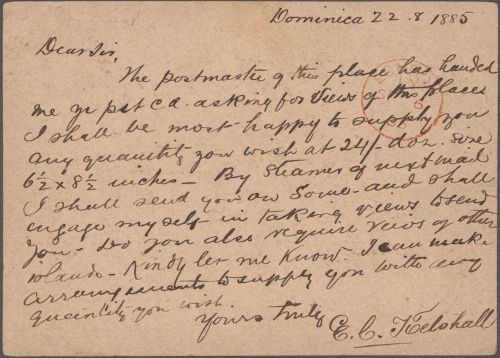 Dominica 22.8 1885
Dear Sir,
The postmaster of this place has handed
me yr pst cd. asking for Views of this places
I shall be most happy to supply you
any quantity you wish at 24/- doz. size
6½ x 8½ inches - By Steamer of next mail
I shall send you on some - and shall
engage myself in taking views to send
you - Do you also require veiws of other
islands - Kindly let me know. I can make
arrangements to supply you with any
quantity you wish.
Yours truly
E. C. Kelshall